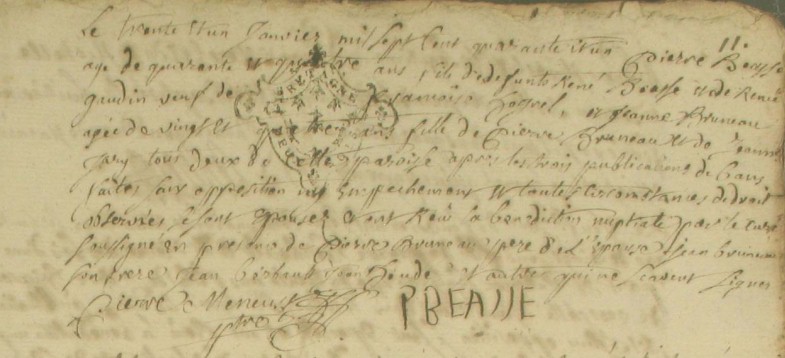 11.
Le trente et un Janvier mil sept cent quarante et un Pierre Beasse
age de quarente et quatre ans fils de defunts René Beasse et de Renée
gaudin veuf de francoise et Jeanne Bruneau
agée de vingt et quatre ans fille de Pierre Bruneau et de Jeanne
Jary tous deux de cette paroisse apres les trois publications de bans
faites sans opposition ny empechement et toutes circonstances de droit
observées se sont epousez et ont Receu la benediction nuptiale par le curé
soussigné en presence de Pierre Bruneau pere de l'epouse Jean bruneau
son frere Jean et autres qui ne scavent signer
Pierre PBEASSE